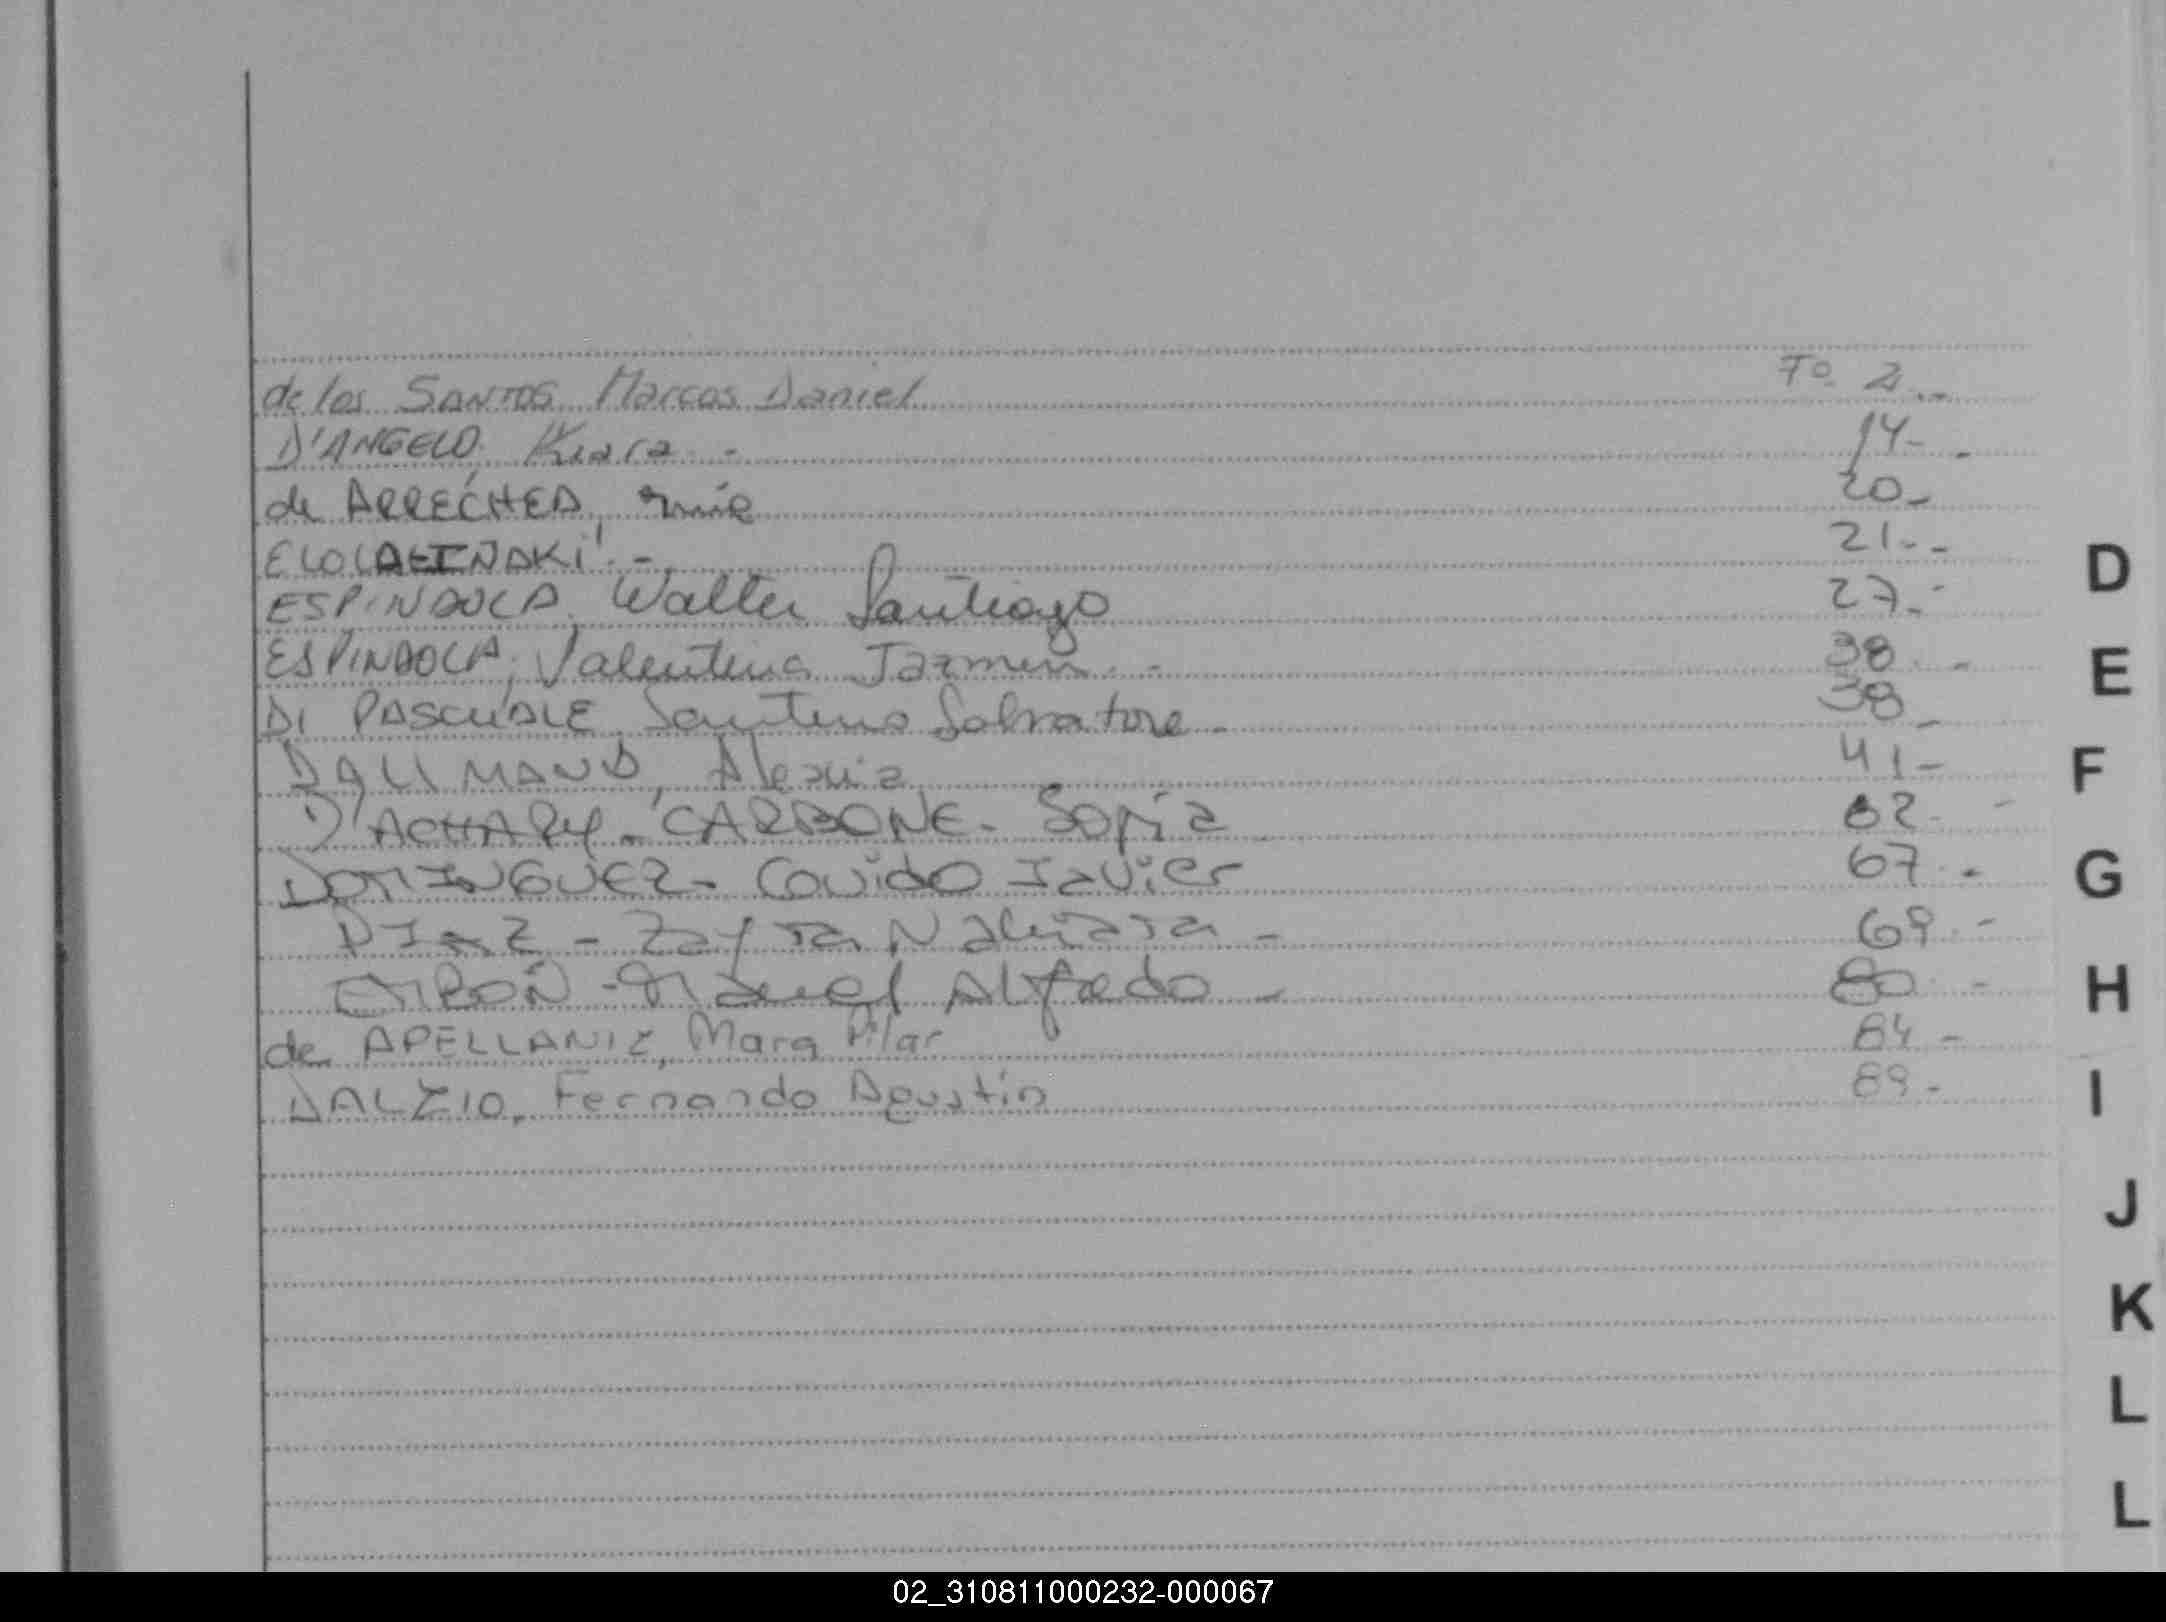 de los SANTOS Marcos Daniel Fº 2.-
D'ANGELO. Kiara.- 14-.
de ARRECHEA, 20-
21.-
ESPINDOLA, Walter Santiago 27.-
ESPINDOLA, Valentina Jazmin.- 38.-
DI PASCUALE Santino Salvatore.- 38-
DALLMAND, Alexia 41-
D'ACHARY-CARBONE- Sofia 62.-
DOMINGUEZ- Javier 67.-
DIAZ - Zayra - 69.-
Manuel Alfredo - 80.-
de APELLANIZ, Mara Pilar 84-
DALZIO, Fernando Agustin 89-
D
E
F
G
H
I
J
K
L
L
02_310811000232-000067